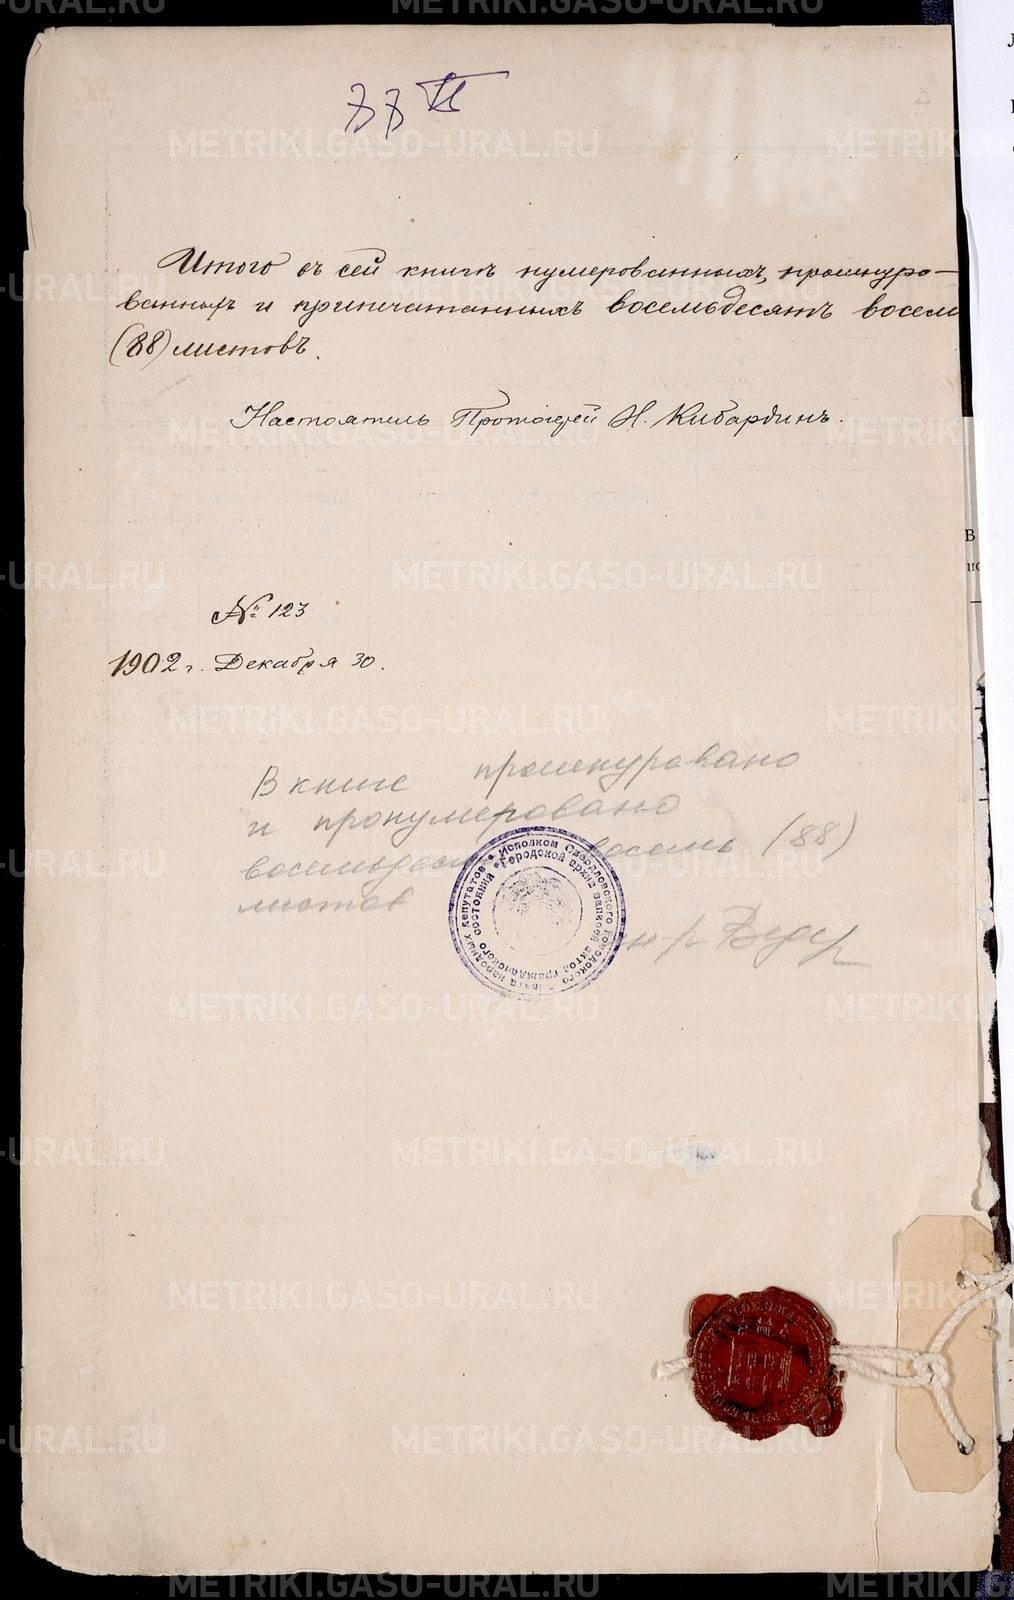 Итого въ сей книгѣ нумерованныхъ, прошнуро-
ванныхъ и припечатанныхъ восемьдесятъ восемь
(88) листовъ.
Настоятель Протоіерей Н. Кибардинъ.
№ 123
1902 г. Декабря 30.
В книге прошнуровано
и пронумеровано
восемьдесят восемь (88)
листов
Исполком Свердловского городского Совета народных депутатов
Городской архив записей актов гражданского состояния
METRIKI.GASO-URAL.RU